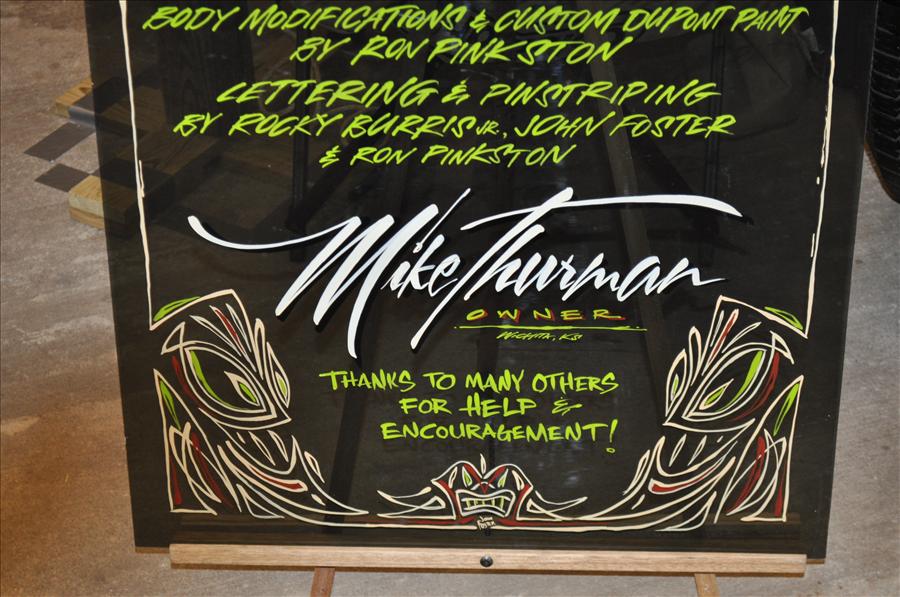 BODY MODIFICATIONS & CUSTOM DUPONT PAINT
BY RON PINKSTON
LETTERING & PINSTRIPING
BY ROCKY BURRIS JR., JOHN FOSTER
& RON PINKSTON
Mike Thurman
OWNER
WICHITA, KS
THANKS TO MANY OTHERS
FOR HELP &
ENCOURAGEMENT!